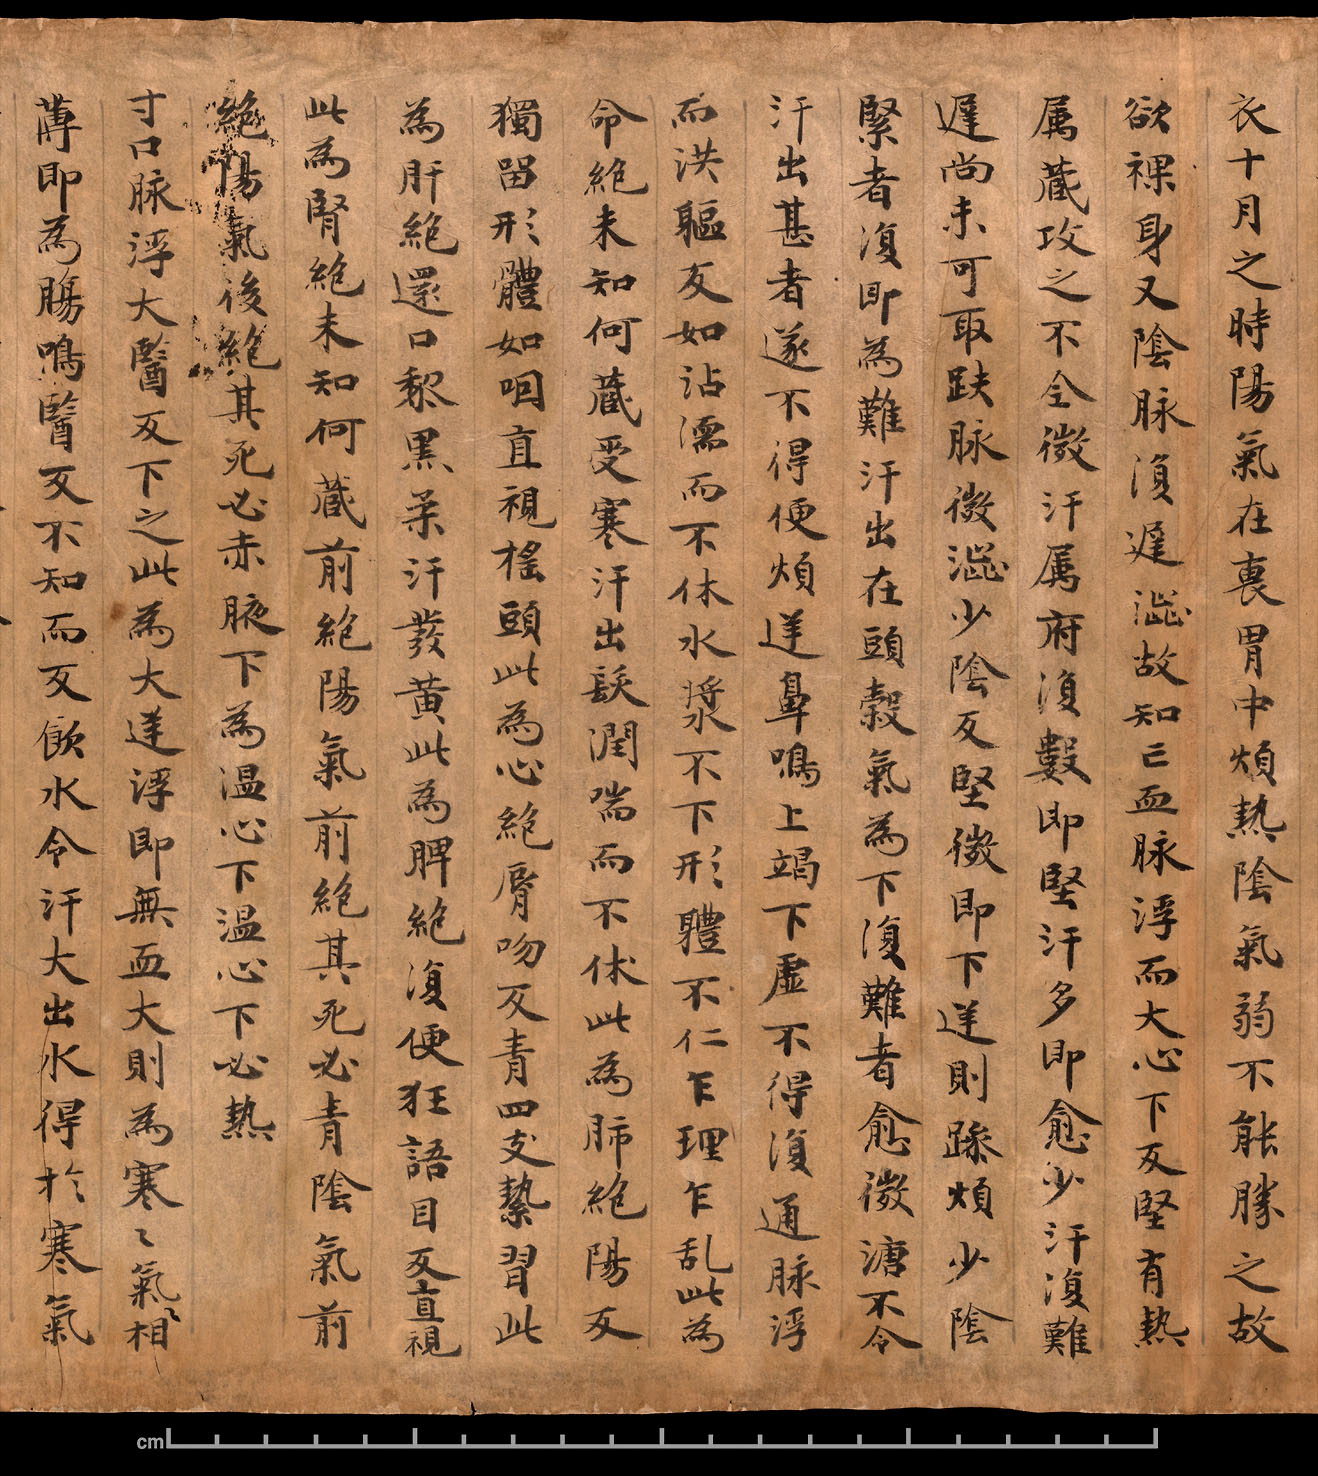 衣十月之時陽氣在裏胃中煩熱陰氣弱不能勝之故
欲裸身又陰脉復遲澁故知亡血脉浮而大心下反堅有熱
属蔵攻之不令微汗属府復數即堅汗多即愈少汗復難
遲尚未可取趺脉微澁少陰反堅微即下逆則躁煩少陰
緊者復即為難汗出在頭穀氣為下復難者愈微溏不令
汗出甚者遂不得便煩逆鼻鳴上竭下虛不得復通脉浮
而洪軀反如沾濡而不休水漿不下形體不仁乍理乍乱此為
命絕未知何蔵受寒汗出髮潤喘而不休此為肺絕陽反
獨留形體如咽直視搖頭此為心絕脣吻反青四支漐習此
為肝絕還口黎黑柔汗發黄此為脾絕復便狂語目反直視
此為腎絕未知何蔵前絕陽氣前絕其死必青陰氣前
絕陽氣後絕其死必赤腋下為温心下温心下必熱
寸口脉浮大醫反下之此為大逆浮即無血大則為寒〻氣相
薄即為腸鳴醫反不知而反飲水令汗大出水得於寒氣